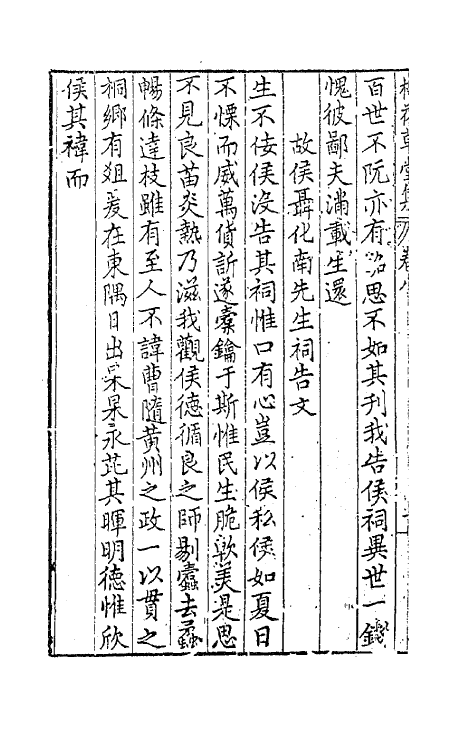 百世不阮亦有 思不如其刊我告侯祠異世一錢
愧彼鄙夫滿載生還
故侯聶化南先生祠告文
生不佞侯沒告其祠惟口有心豈以侯私侯如夏日
不慄而威萬貨訴遂橐鑰于斯惟民生脆歉美是思
不見良苗炎熱乃滋我觀侯德循良之師剔蠹去蟊
暢條達枝雖有至人不諱曹隨黃州之政一以貫之
桐鄉有俎爰在東隅日出杲杲永芘其暉明德惟欣
侯其禕而